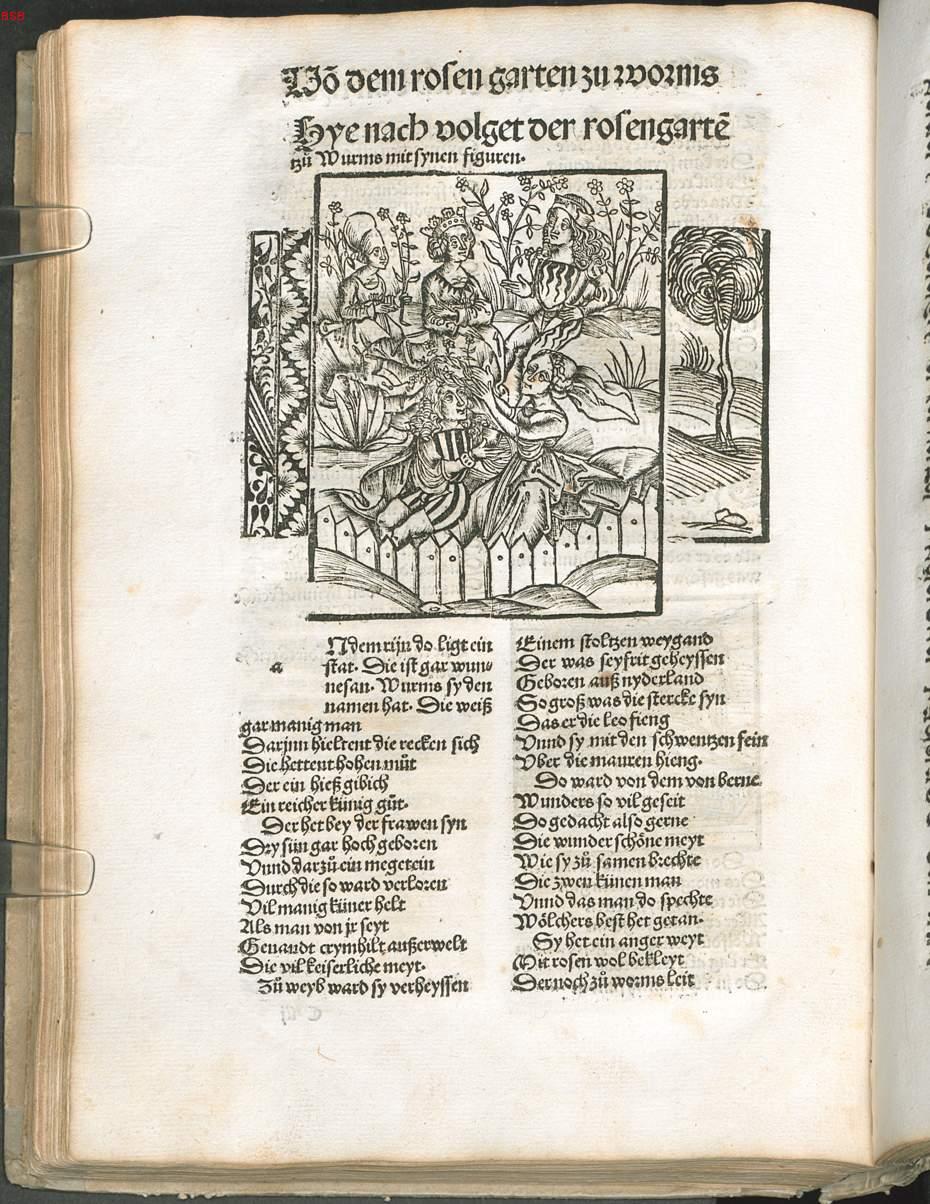 BSB
Võ dem rosen garten zu worms
Hye nach volget der rosengartē
tzů Wurms mit synen figuren.
a
N dem rijn do ligt ein
stat. Die ist gar wun⸗
nesan. Wurms sy den
namen hat. Die weiß
gar manig man
Darjnn hieltent die recken sich
Die hettent hohen můt
Der ein hieß gibich
Ein reicher künig gůt.
Der het bey der frawen syn
Dry sün gar hoch geboren
Vnnd darzů ein megetein
Durch die so ward verloren
Vil manig küner helt
Als man von jr seyt
Genandt crymhilt außerwelt
Die vil keiserliche meyt.
Zů weyb ward sy verheyssen
Einem stoltzen weygand
Der was seyfrit geheyssen
Geboren auß nyderland
So groß was die stercke syn
Das er die leo fieng
Vnnd sy mit den schwentzen fein
Vber die mauren hieng.
Do ward von dem von berne
Wunders so vil geseit
Do gedacht also gerne
Die wunder schöne meyt
Wie sy zů samen brechte
Die zwen künen man
Vnnd das man do spechte
Wölchers best het getan.
Sy het ein anger weyt
Mit rosen wol bekleyt
Der noch zů worms leit